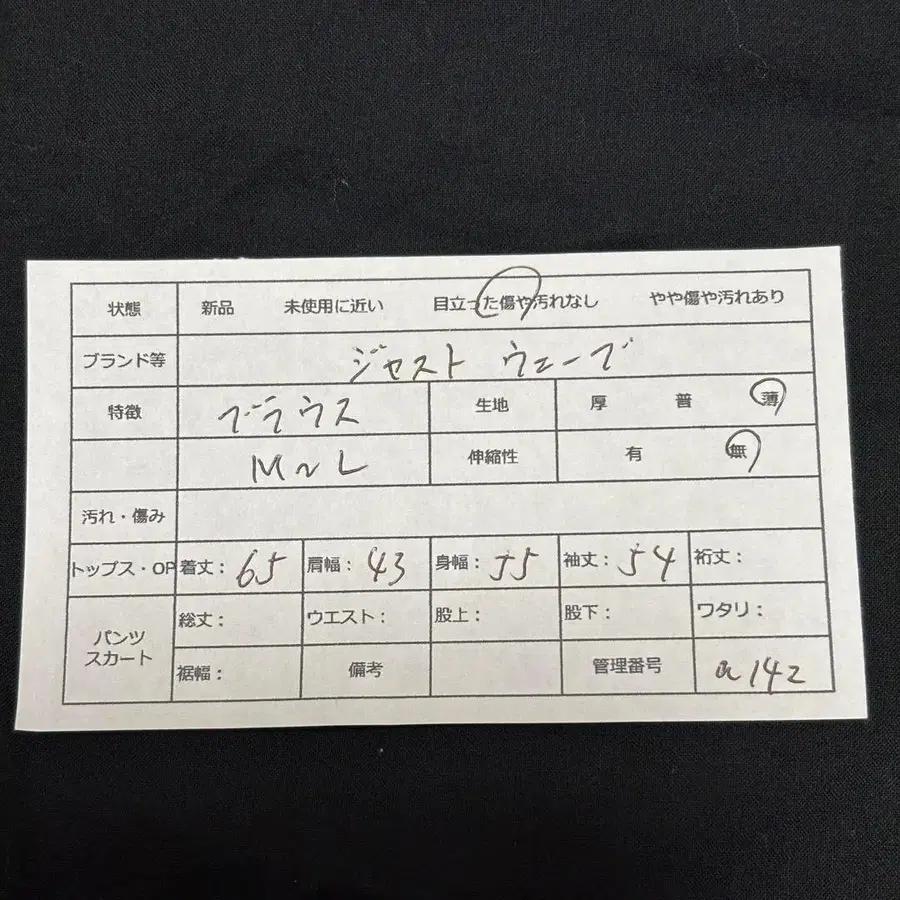 状態 新品 未使用に近い 目立った傷や汚れなし やや傷や汚れあり
ブランド等 ジャスト ウェーブ
特徴 ブラウス 生地 厚 普 薄
M~L 伸縮性 有 無
汚れ・傷み
トップス・OP 着丈: 65 肩幅: 43 身幅: 55 袖丈: 54 裄丈:
パンツ スカート 総丈: ウエスト: 股上: 股下: ワタリ:
裾幅: 備考 管理番号 a142